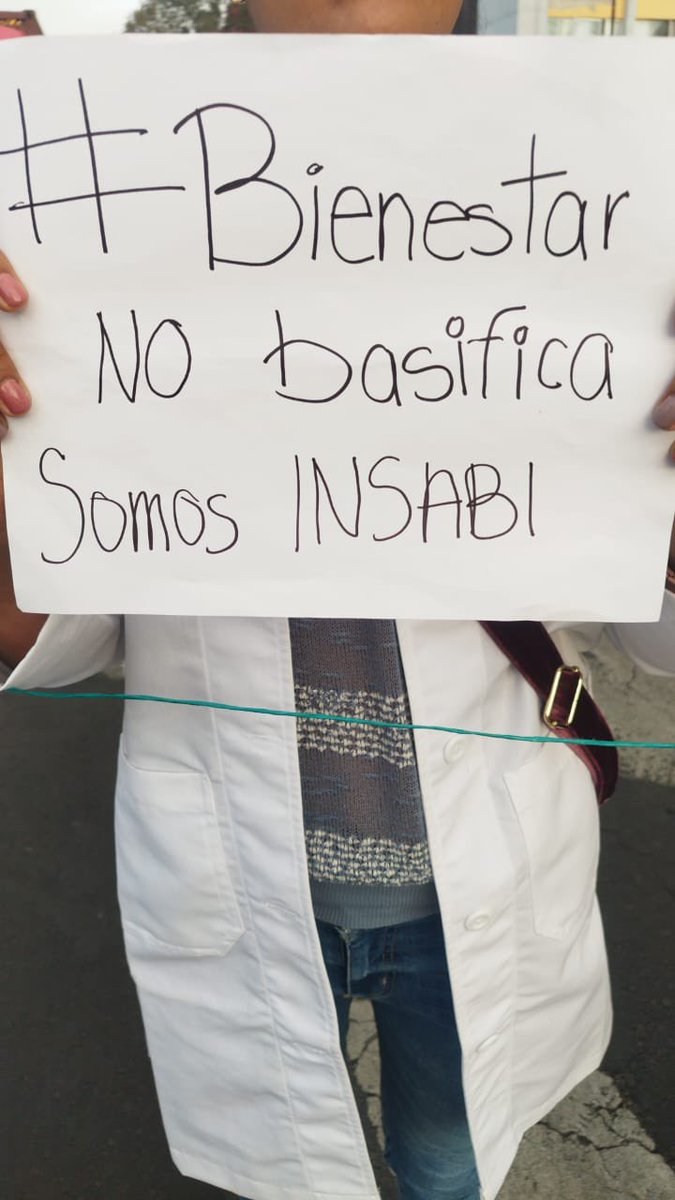 #Bienestar
NO basifica
Somos INSABI